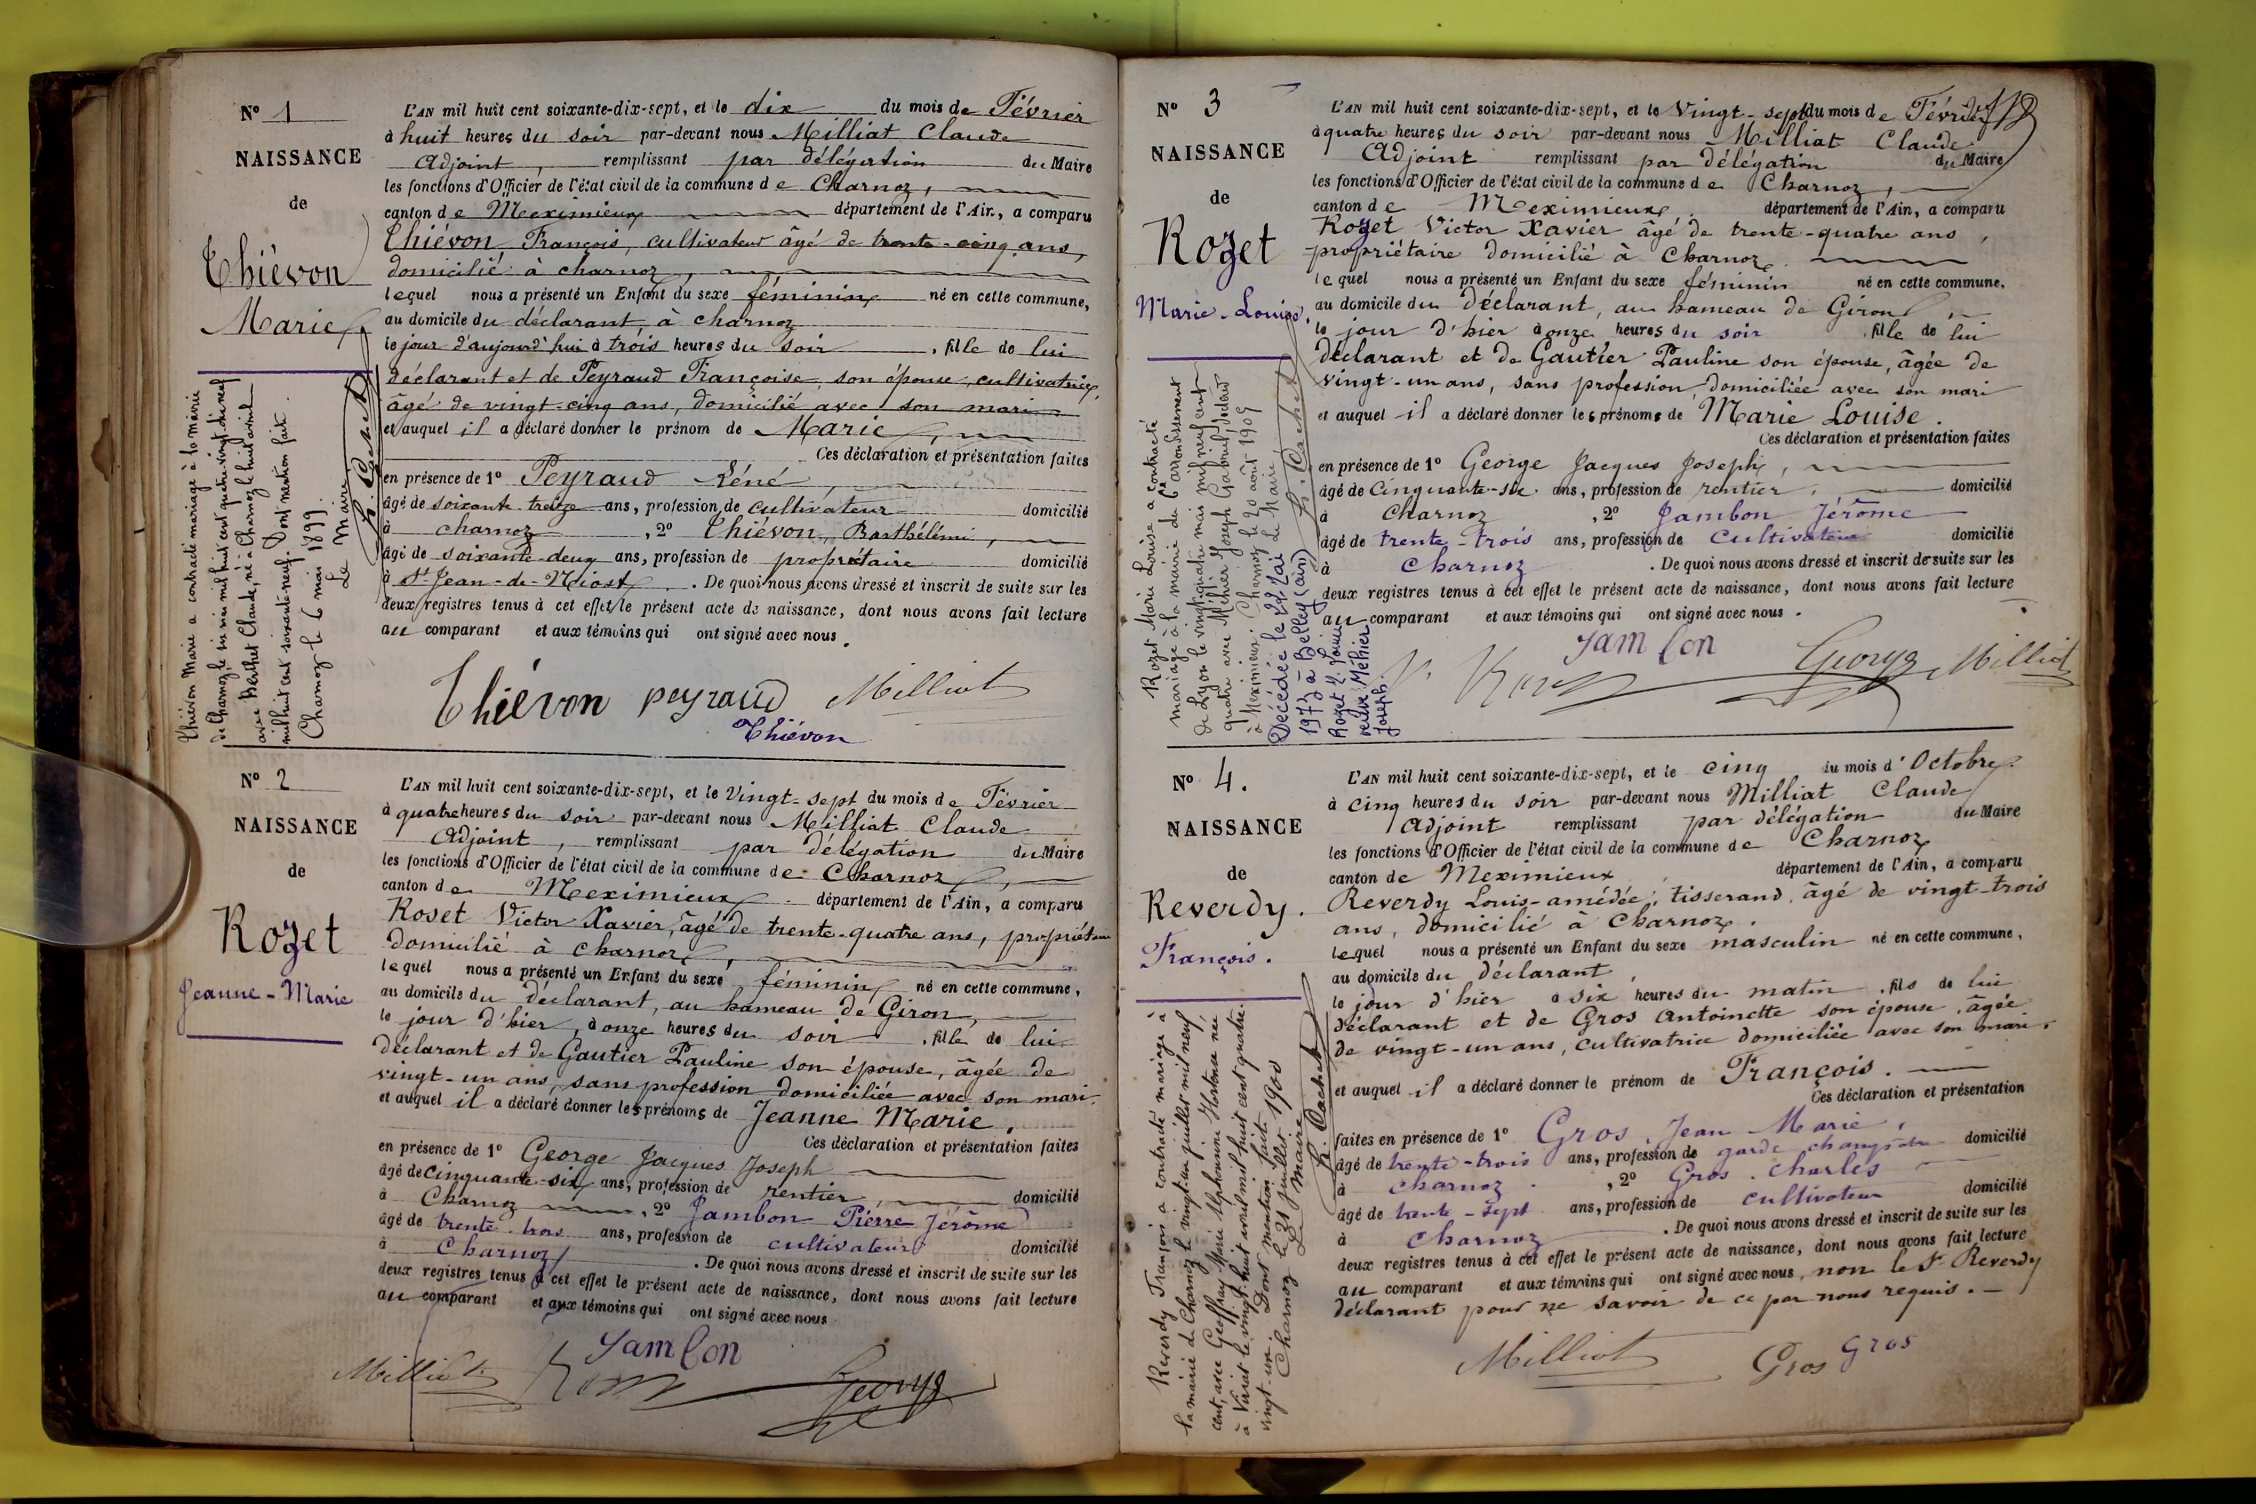 N° 1
NAISSANCE
de
Thiévon
Marie
L'AN mil huit cent soixante-dix-sept, et le dix du mois de Février
à huit heures du soir par-devant nous Milliat Claude
Adjoint, remplissant par délégation du Maire
les fonctions d'Officier de l'état civil de la commune de Charnoz,
canton de Meximieux département de l'Ain, a comparu
Thiévon François, cultivateur âgé de trente-cinq ans,
domicilié à charnoz,
lequel nous a présenté un Enfant du sexe féminin né en cette commune,
au domicile du déclarant, à charnoz
le jour d'aujourd'hui à trois heures du soir, fille de lui
déclarant et de Peyraud Françoise, son épouse, cultivatrice,
âgé de vingt-cinq ans, domicilié avec son mari
et auquel il a déclaré donner le prénom de Marie,
Ces déclaration et présentation faites
en présence de 1° Peyraud Réné,
âgé de soixante treize ans, profession de cultivateur domicilié
à charnoz, 2° Thiévon, Barthélémi,
âgé de soixante-deux ans, profession de propriétaire domicilié
à St Jean-de-Niost. De quoi nous avons dressé et inscrit de suite sur les
deux registres tenus à cet effet le présent acte de naissance, dont nous avons fait lecture
au comparant et aux témoins qui ont signé avec nous.
Thiévon peyraud Milliat
Thiévon
Thiévon Marie a contracté mariage à la mairie
de Charnoz le six mai mil huit cent quatre vingt-dix neuf
avec Berthet Claude, né à Charnoz le huit avril
mil huit cent soixante neuf. Dont mention faite.
Charnoz le 6 mai 1899.
Le Maire
N° 2
NAISSANCE
de
Rozet
Jeanne-Marie
L'AN mil huit cent soixante-dix-sept, et le Vingt-sept du mois de Février
à quatre heures du soir par-devant nous Milliat Claude
Adjoint, remplissant par délégation du Maire
les fonctions d'Officier de l'état civil de la commune de Charnoz,
canton de Meximieux département de l'Ain, a comparu
Roset Victor Xavier, âgé de trente-quatre ans, propriétaire
domicilié à charnoz,
lequel nous a présenté un Enfant du sexe féminin né en cette commune,
au domicile du déclarant, au hameau de Giron,
le jour d'hier, à onze heures du soir, fille de lui
déclarant et de Gautier Pauline son épouse, âgée de
vingt-un ans, sans profession domiciliée avec son mari.
et auquel il a déclaré donner les prénoms de Jeanne Marie.
Ces déclaration et présentation faites
en présence de 1° George Jacques Joseph
âgé de cinquante-six ans, profession de rentier, domicilié
à Charnoz, 2° Jambon Pierre Jérôme
âgé de trente-trois ans, profession de cultivateur domicilié
à Charnoz. De quoi nous avons dressé et inscrit de suite sur les
deux registres tenus à cet effet le présent acte de naissance, dont nous avons fait lecture
au comparant et aux témoins qui ont signé avec nous
Jambon
Milliat George
N° 3
NAISSANCE
de
Rozet
Marie-Louise.
L'AN mil huit cent soixante-dix-sept, et le Vingt-sept du mois de Février
à quatre heures du soir par-devant nous Milliat Claude
Adjoint remplissant par délégation du Maire
les fonctions d'Officier de l'état civil de la commune de Charnoz,
canton de Meximieux département de l'Ain, a comparu
Rozet Victor Xavier âgé de trente-quatre ans,
propriétaire domicilié à Charnoz.
lequel nous a présenté un Enfant du sexe féminin né en cette commune,
au domicile du déclarant, au hameau de Giron
le jour d'hier à onze heures du soir, fille de lui
déclarant et de Gautier Pauline son épouse, âgée de
vingt-un ans, sans profession domiciliée avec son mari
et auquel il a déclaré donner les prénoms de Marie Louise.
Ces déclaration et présentation faites
en présence de 1° George Jacques Joseph,
âgé de cinquante-six ans, profession de rentier, domicilié
à Charnoz, 2° Jambon Jérôme
âgé de trente-trois ans, profession de cultivateur domicilié
à Charnoz. De quoi nous avons dressé et inscrit de suite sur les
deux registres tenus à cet effet le présent acte de naissance, dont nous avons fait lecture
au comparant et aux témoins qui ont signé avec nous.
Jambon
George Milliat
Rozet Marie Louise a contracté
mariage à la mairie du 6e arrondissement
de Lyon le vingt quatre mai mil neuf cent
quatre avec Méhier Joseph Gabriel,
à Meximieux. Charnoz le 20 août 1909
Le Maire,
Décédée le
à Belley (Ain)
Rozet
veuve Méhier
Joseph.
N° 4.
NAISSANCE
de
Reverdy.
François.
L'AN mil huit cent soixante-dix-sept, et le cinq du mois d'Octobre
à cinq heures du soir par-devant nous Milliat Claude
Adjoint remplissant par délégation du Maire
les fonctions d'Officier de l'état civil de la commune de Charnoz
canton de Meximieux département de l'Ain, a comparu
Reverdy Louis-amédée, tisserand, âgé de vingt-trois
ans, domicilié à Charnoz.
lequel nous a présenté un Enfant du sexe masculin né en cette commune,
au domicile du déclarant,
le jour d'hier à six heures du matin, fils de lui
déclarant et de Gros Antoinette son épouse, âgée
de vingt-un ans, cultivatrice domiciliée avec son mari.
et auquel il a déclaré donner le prénom de François.
Ces déclaration et présentation
faites en présence de 1° Gros, Jean Marie,
âgé de trente-trois ans, profession de garde champêtre domicilié
à charnoz, 2° Gros. Charles
âgé de trente-sept ans, profession de cultivateur domicilié
à charnoz. De quoi nous avons dressé et inscrit de suite sur les
deux registres tenus à cet effet le présent acte de naissance, dont nous avons fait lecture
au comparant et aux témoins qui ont signé avec nous, non le Sr Reverdy
déclarant pour ne savoir de ce par nous requis.
Milliat Gros Gros
Reverdy François a contracté mariage à
la mairie de Charnoz le vingt un juillet mil neuf
cent, avec Geoffray Marie Alphonsine Hortense née
à le vingt huit avril mil huit cent quatre
vingt-un. Dont mention faite.
Charnoz le 21 juillet 1900
Le Maire